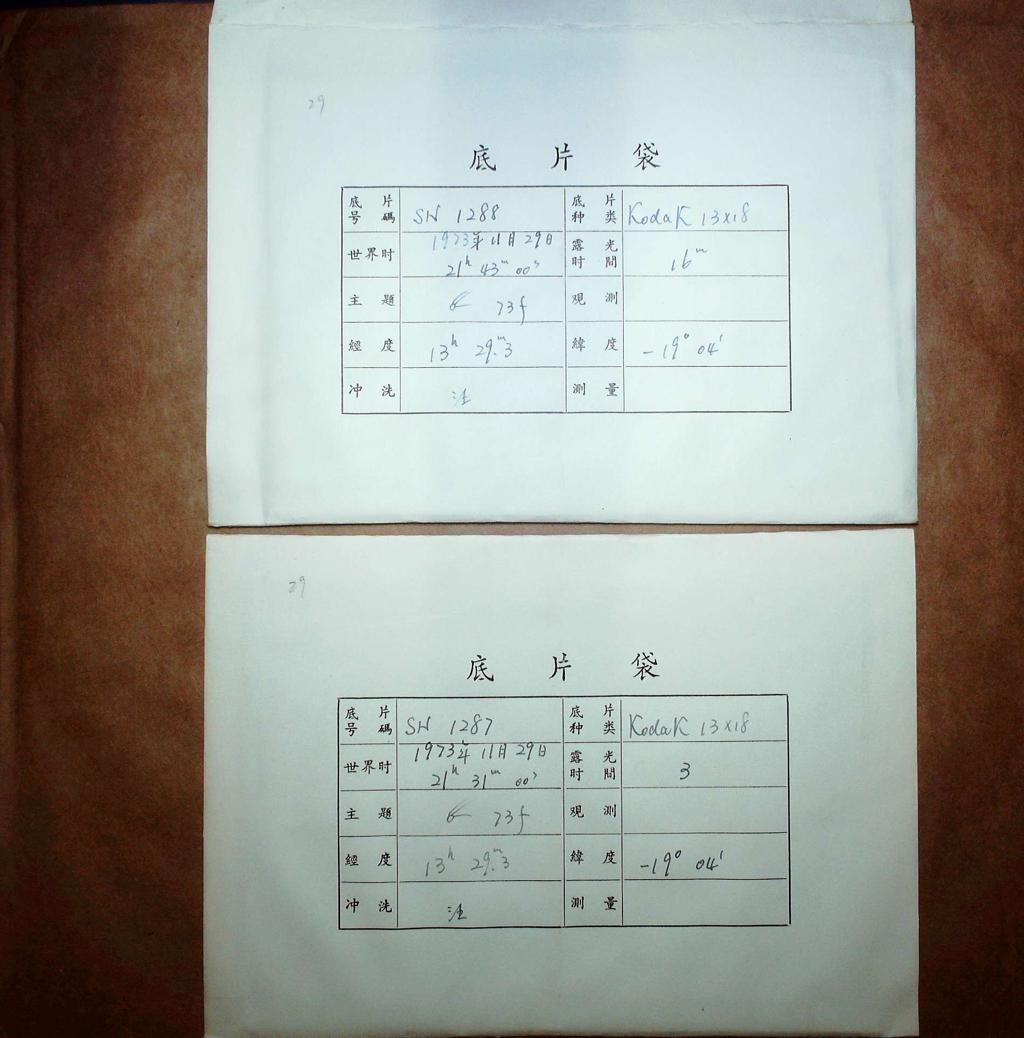 29
底 片 袋
底片号碼 SN 1288 底片种类 Kodak 13x18
世界时 1973年11月29日 21ʰ 43ᵐ 00ˢ 露光时間 16ᵐ
主題 73f 观測
經度 13ʰ 29.ᵐ3 緯度 -19° 04'
冲洗 測量
29
底 片 袋
底片号碼 SN 1287 底片种类 Kodak 13x18
世界时 1973年11月29日 21ʰ 31ᵐ 00ˢ 露光时間 3
主題 73f 观測
經度 13ʰ 29.ᵐ3 緯度 -19° 04'
冲洗 測量